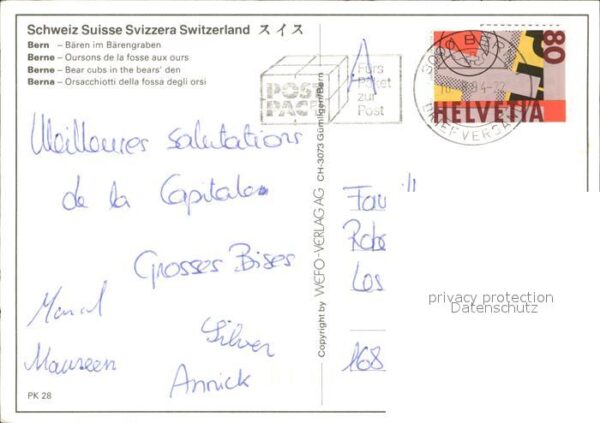 Schweiz Suisse Svizzera Switzerland スイス
Bern – Bären im Bärengraben
Berne – Oursons de la fosse aux ours
Berne – Bear cubs in the bears' den
Berna – Orsacchiotti della fossa degli orsi
A
POST
PAC
Fürs
Paket
zur
Post
BERN
BRIEFVERSAND
80
HELVETIA
Meilleures salutations
de la Capitale.
Grosses Bises
Marcel
Maureen
Silver
Annick
Copyright by WEFO-VERLAG AG CH-3073 Gümligen/Bern
Fam
Robe
Les
168
privacy protection
Datenschutz
PK 28